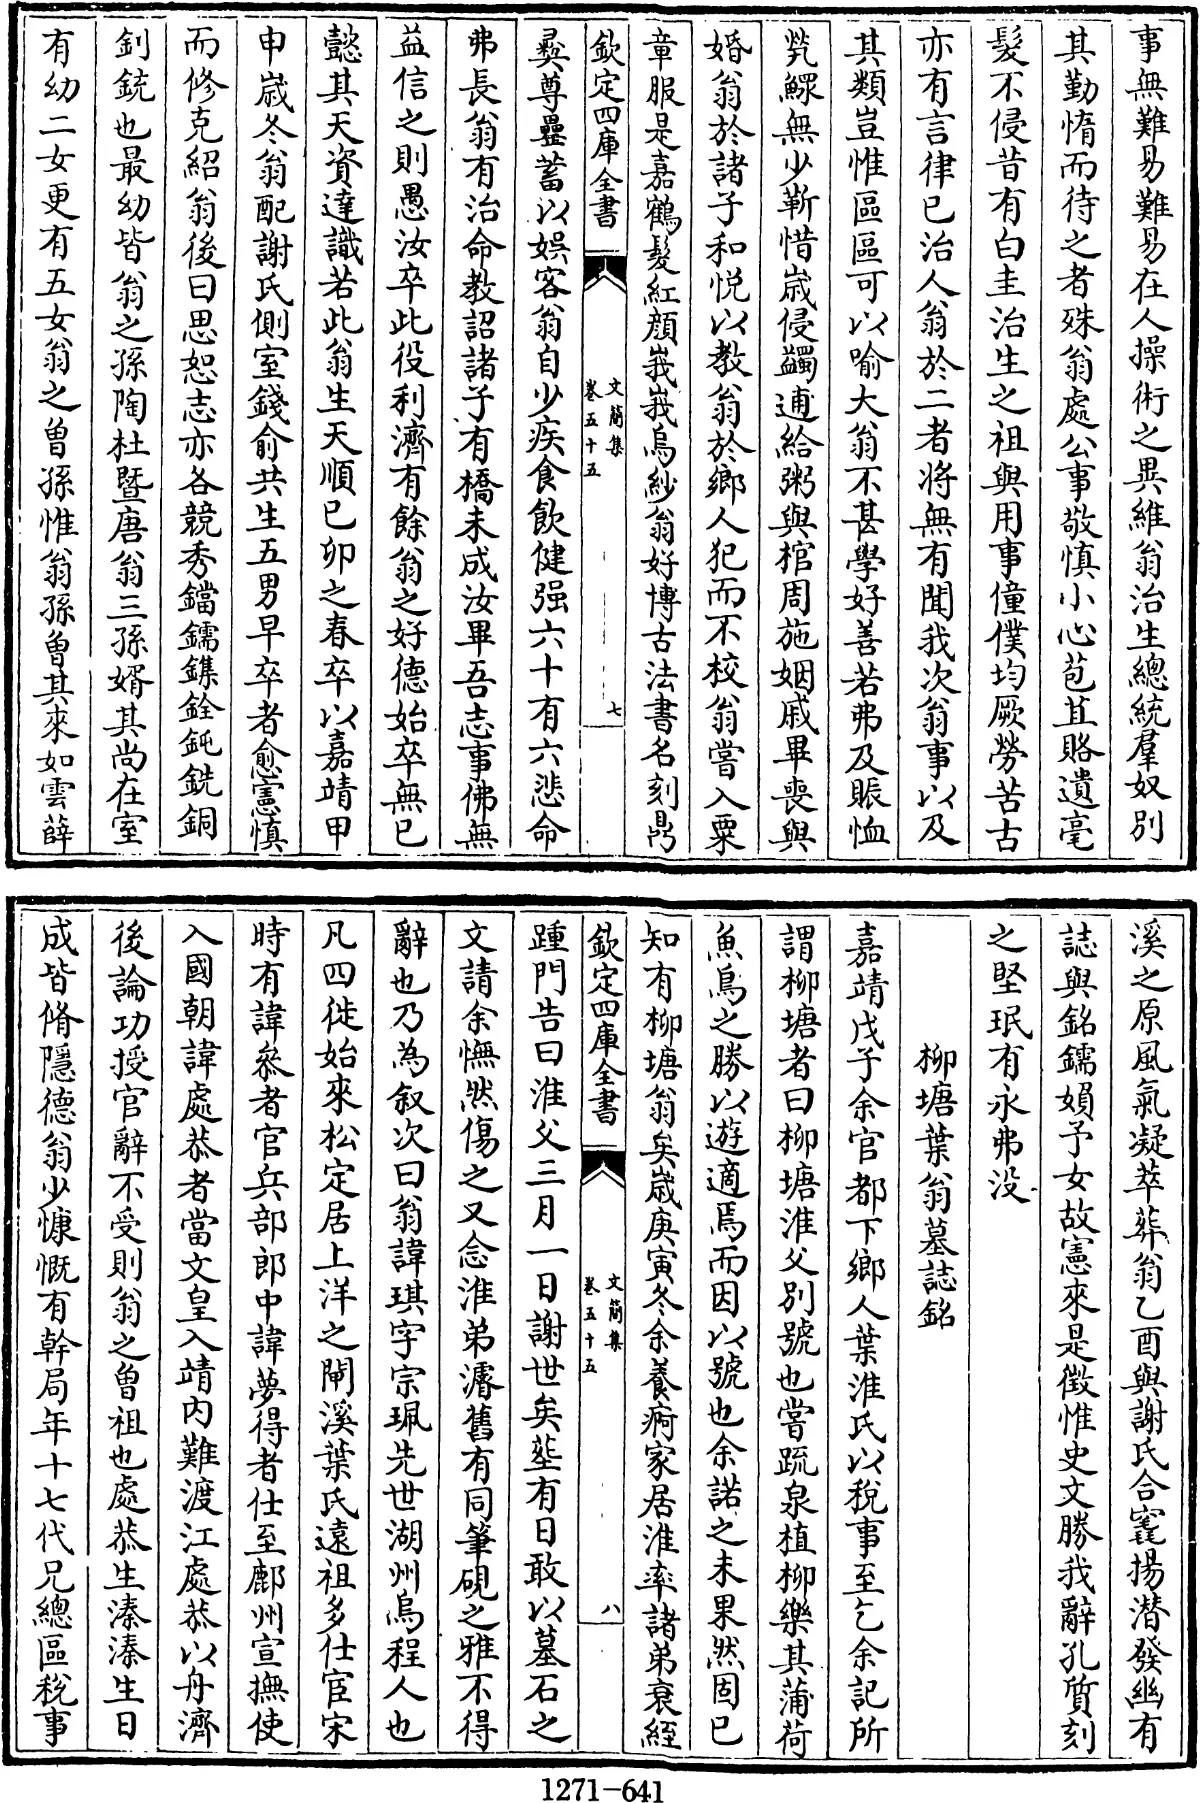 事無難易難易在人操術之異維翁治生總統羣奴別
其勤惰而待之者殊翁處公事敬慎小心苞苴賂遺毫
髮不侵昔有白圭治生之祖與用事僮僕均厥勞苦古
亦有言律已治人翁於二者將無有聞我次翁事以及
其類豈惟區區可以喻大翁不甚學好善若弗及賑恤
煢鰥無少靳惜歳侵蠲逋給粥與棺周施姻戚畢喪與
婚翁於諸子和悦以教翁於鄉人犯而不校翁嘗入粟
章服是嘉鶴髮紅顔峩峩烏紗翁好博古法書名刻鼎
欽定四庫全書
文簡集
卷五十五
七
彛尊罍蓄以娯客翁自少疾食飲健强六十有六悲命
弗長翁有治命教詔諸子有橋未成汝畢吾志事佛無
益信之則愚汝卒此役利濟有餘翁之好德始卒無已
懿其天資達識若此翁生天順已卯之春卒以嘉靖甲
申歳冬翁配謝氏側室錢俞共生五男早卒者愈憲慎
而修克紹翁後曰思恕志亦各競秀鐺鑐鐫銓鈍銑銅
釗銃也最幼皆翁之孫陶杜暨唐翁三孫婿其尚在室
有幼二女更有五女翁之曽孫惟翁孫曽其來如雲薛
溪之原風氣凝萃葬翁乙酉與謝氏合窆揚潜發幽有
誌與銘鑐嬪予女故憲來是徴惟史文勝我辭孔質刻
之堅珉有永弗没
柳塘葉翁墓誌銘
嘉靖戊子余官都下鄉人葉淮氏以税事至乞余記所
謂柳塘者曰柳塘淮父別號也嘗疏泉植柳樂其蒲荷
魚鳥之勝以遊適焉而因以號也余諾之未果然固已
知有柳塘翁矣歳庚寅冬余養痾家居淮率諸弟衰絰
欽定四庫全書
文簡集
卷五十五
八
踵門告曰淮父三月一日謝世矣塟有日敢以墓石之
文請余憮然傷之又念淮弟濬舊有同筆硯之雅不得
辭也乃為叙次曰翁諱琪字宗珮先世湖州烏程人也
凡四徙始來松定居上洋之閘溪葉氏遠祖多仕宦宋
時有諱叅者官兵部郎中諱夢得者仕至鄜州宣撫使
入國朝諱處恭者當文皇入靖内難渡江處恭以舟濟
後論功授官辭不受則翁之曽祖也處恭生溱溱生日
成皆脩隱德翁少慷慨有幹局年十七代兄總區税事
1271-641